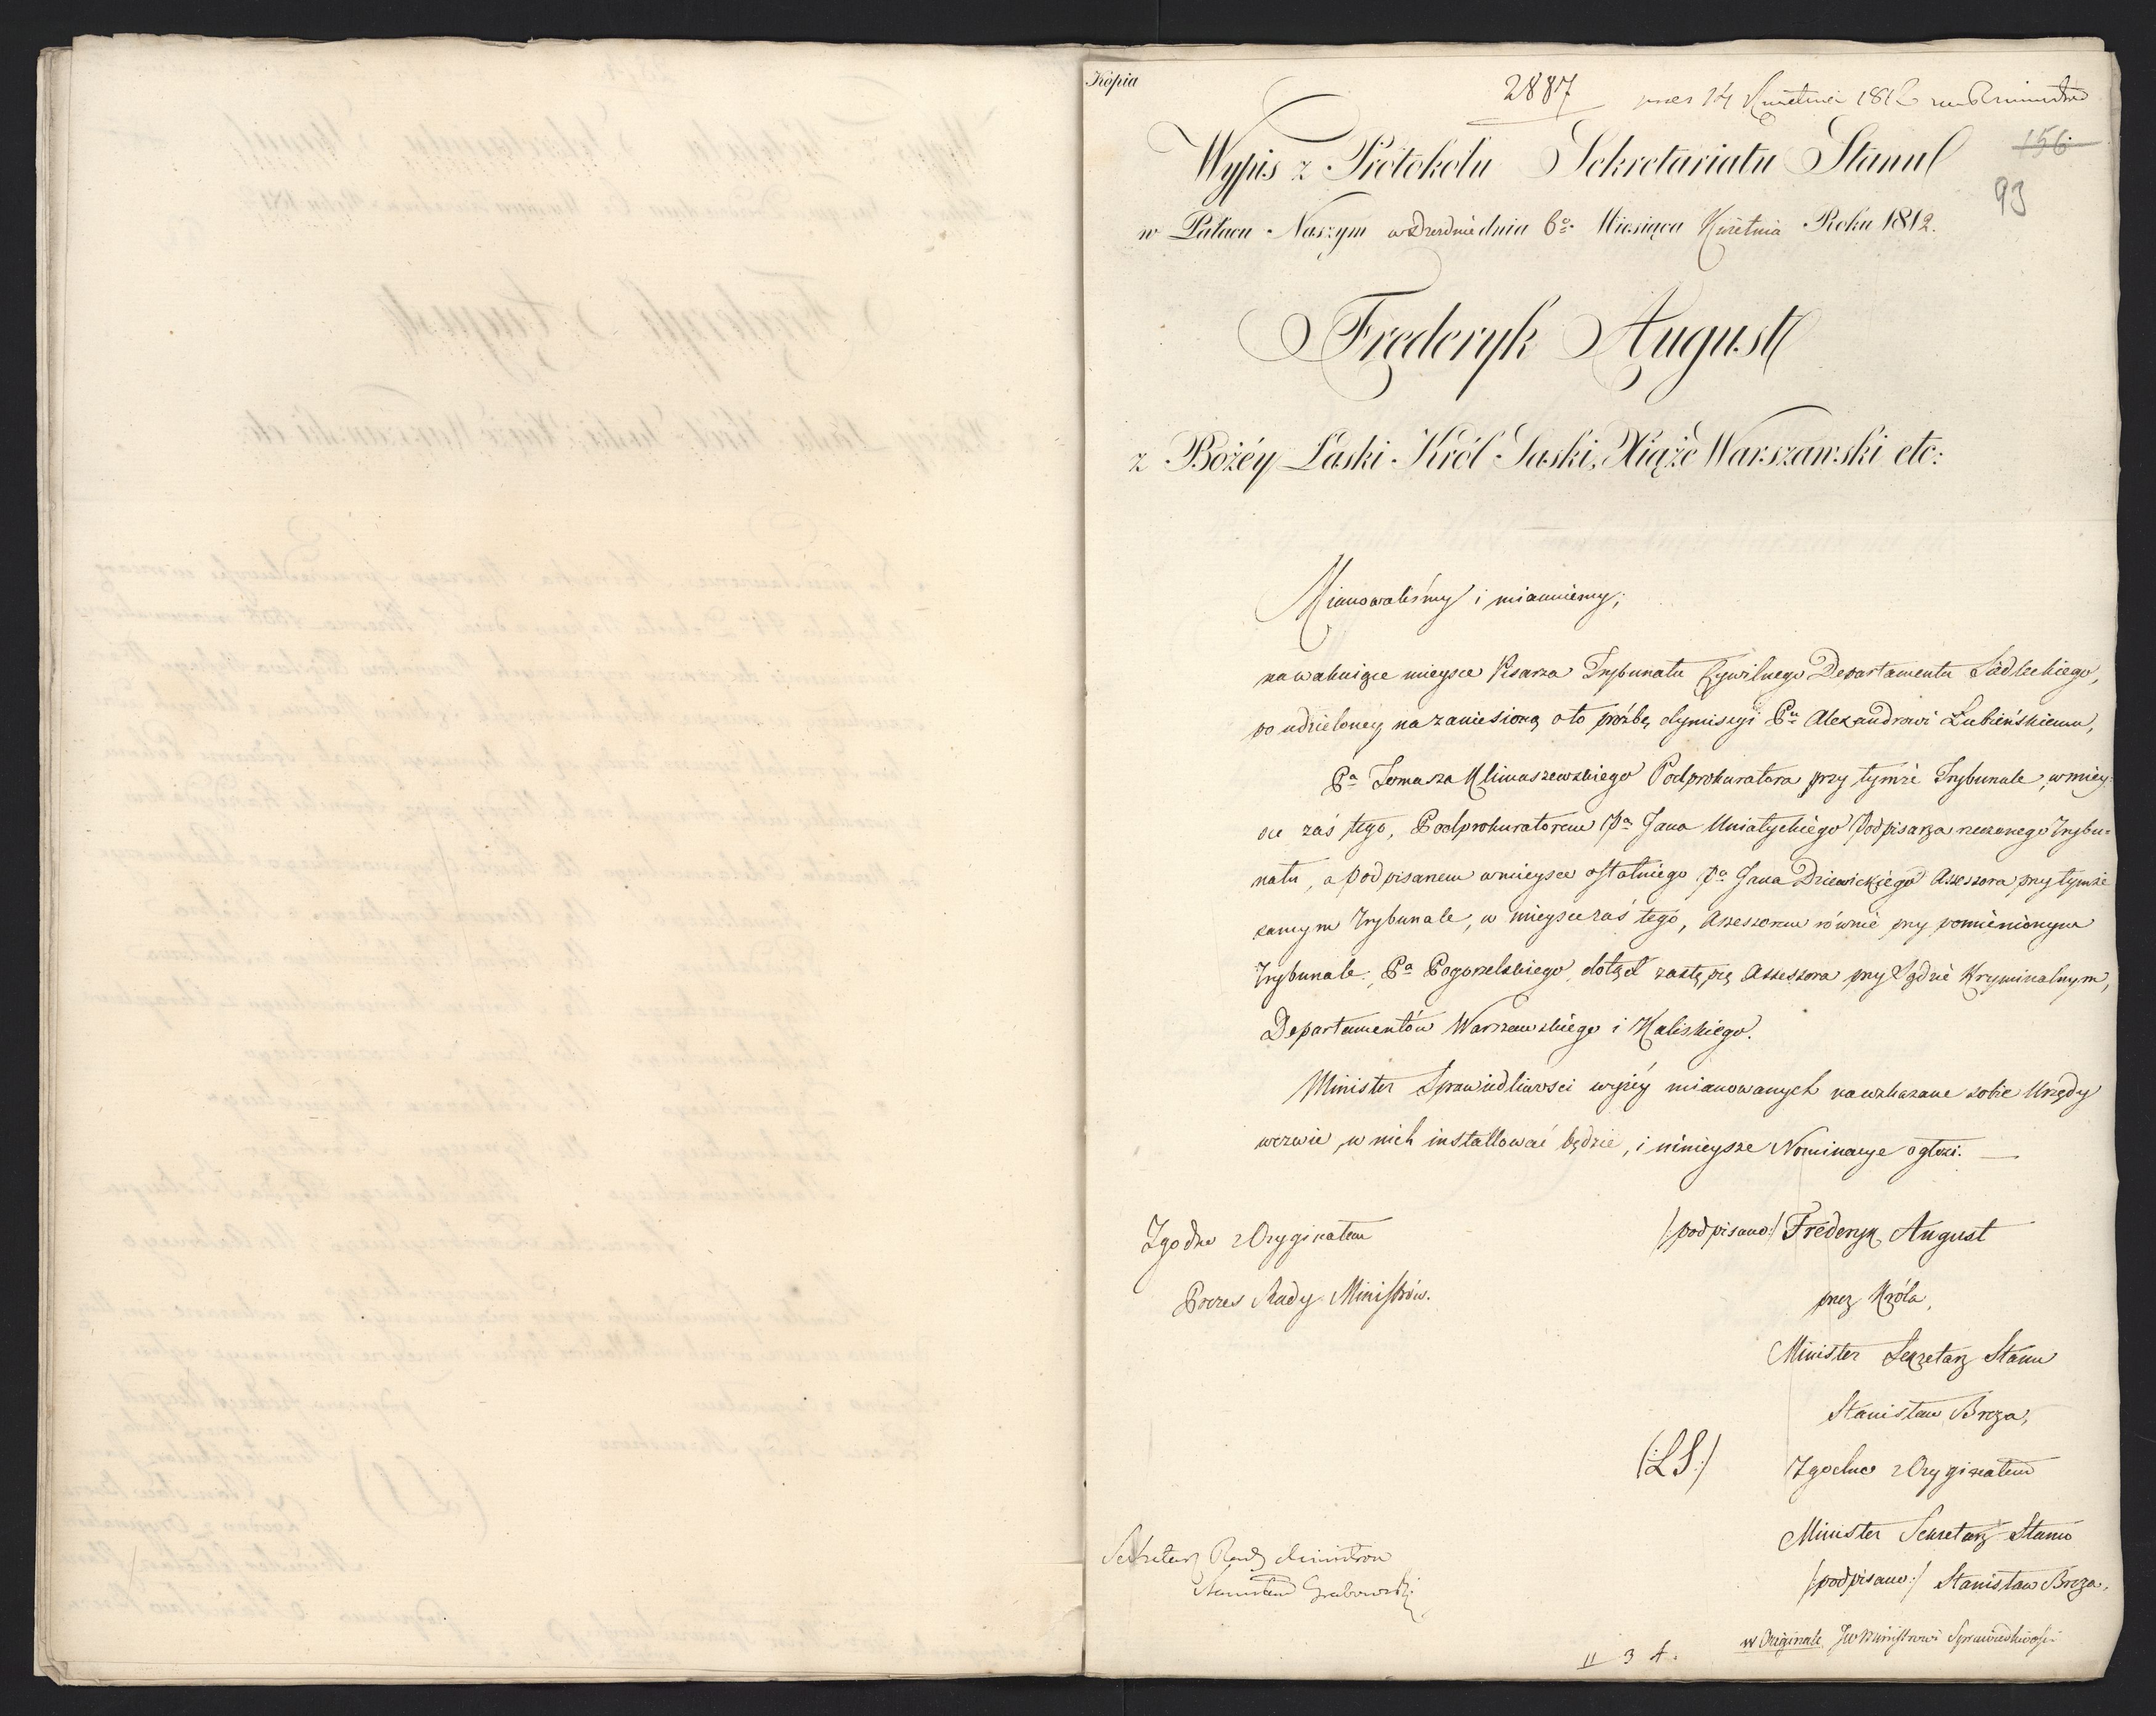 Kopia
2887
14 Kwietnia 1812
156
93
Wypis z Protokołu Sekretariatu Stanu
w Pałacu Naszym w Dreźnie dnia 6o Miesiąca Kwietnia Roku 1812.
Fryderyk August
z Bożéy Łaski Król Saski, Xiążę Warszawski etc:
Mianowaliśmy i mianuiemy;
na wakuiące mieysce Pisarza Trybunału Cywilnego Departamentu Siedleckiego,
po udzieloney na zaniesioną o to prośbę dymissyi Pu Alexandrowi Łubieńskiemu,
Pa Tomasza Klimaszewskiego Podprokuratora przy tymże Trybunale, w miey-
sce zaś tego, Podprokuratorem Pa Jana Uniatyckiego Podpisarza rzeczonego Trybu=
nału, a Podpisarzem w mieysce ostatniego, Pa Jana Dziewickiego Assessora przy tymże
samym Trybunale, w mieysce zaś tego, Assessorem równie przy pomienionym
Trybunale, Pa Pogorzelskiego, dotąd zastępcę Assessora przy Sądzie Kryminalnym,
Departamentów Warszawskiego i Kaliskiego.
Minister Sprawiedliwosci wyżéy mianowanych na wskazane sobie Urzędy
wezwie, w nich installować będzie, i ninieysze Nominacye ogłosi.
Zgodno z Oryginałem
/:podpisano:/ Fryderyk August
Prezes Rady Ministrów.
przez Króla,
Minister Sekretarz Stanu
Stanisław Breza,
(:L.S:)
Zgodno z Oryginałem
Minister Sekretarz Stanu
/:podpisano:/ Stanisław Breza.
Sekretarz Rady Ministrow
Stanisław Grabowski
w Originale JW Ministrowi Sprawiedliwości
II 3 4.